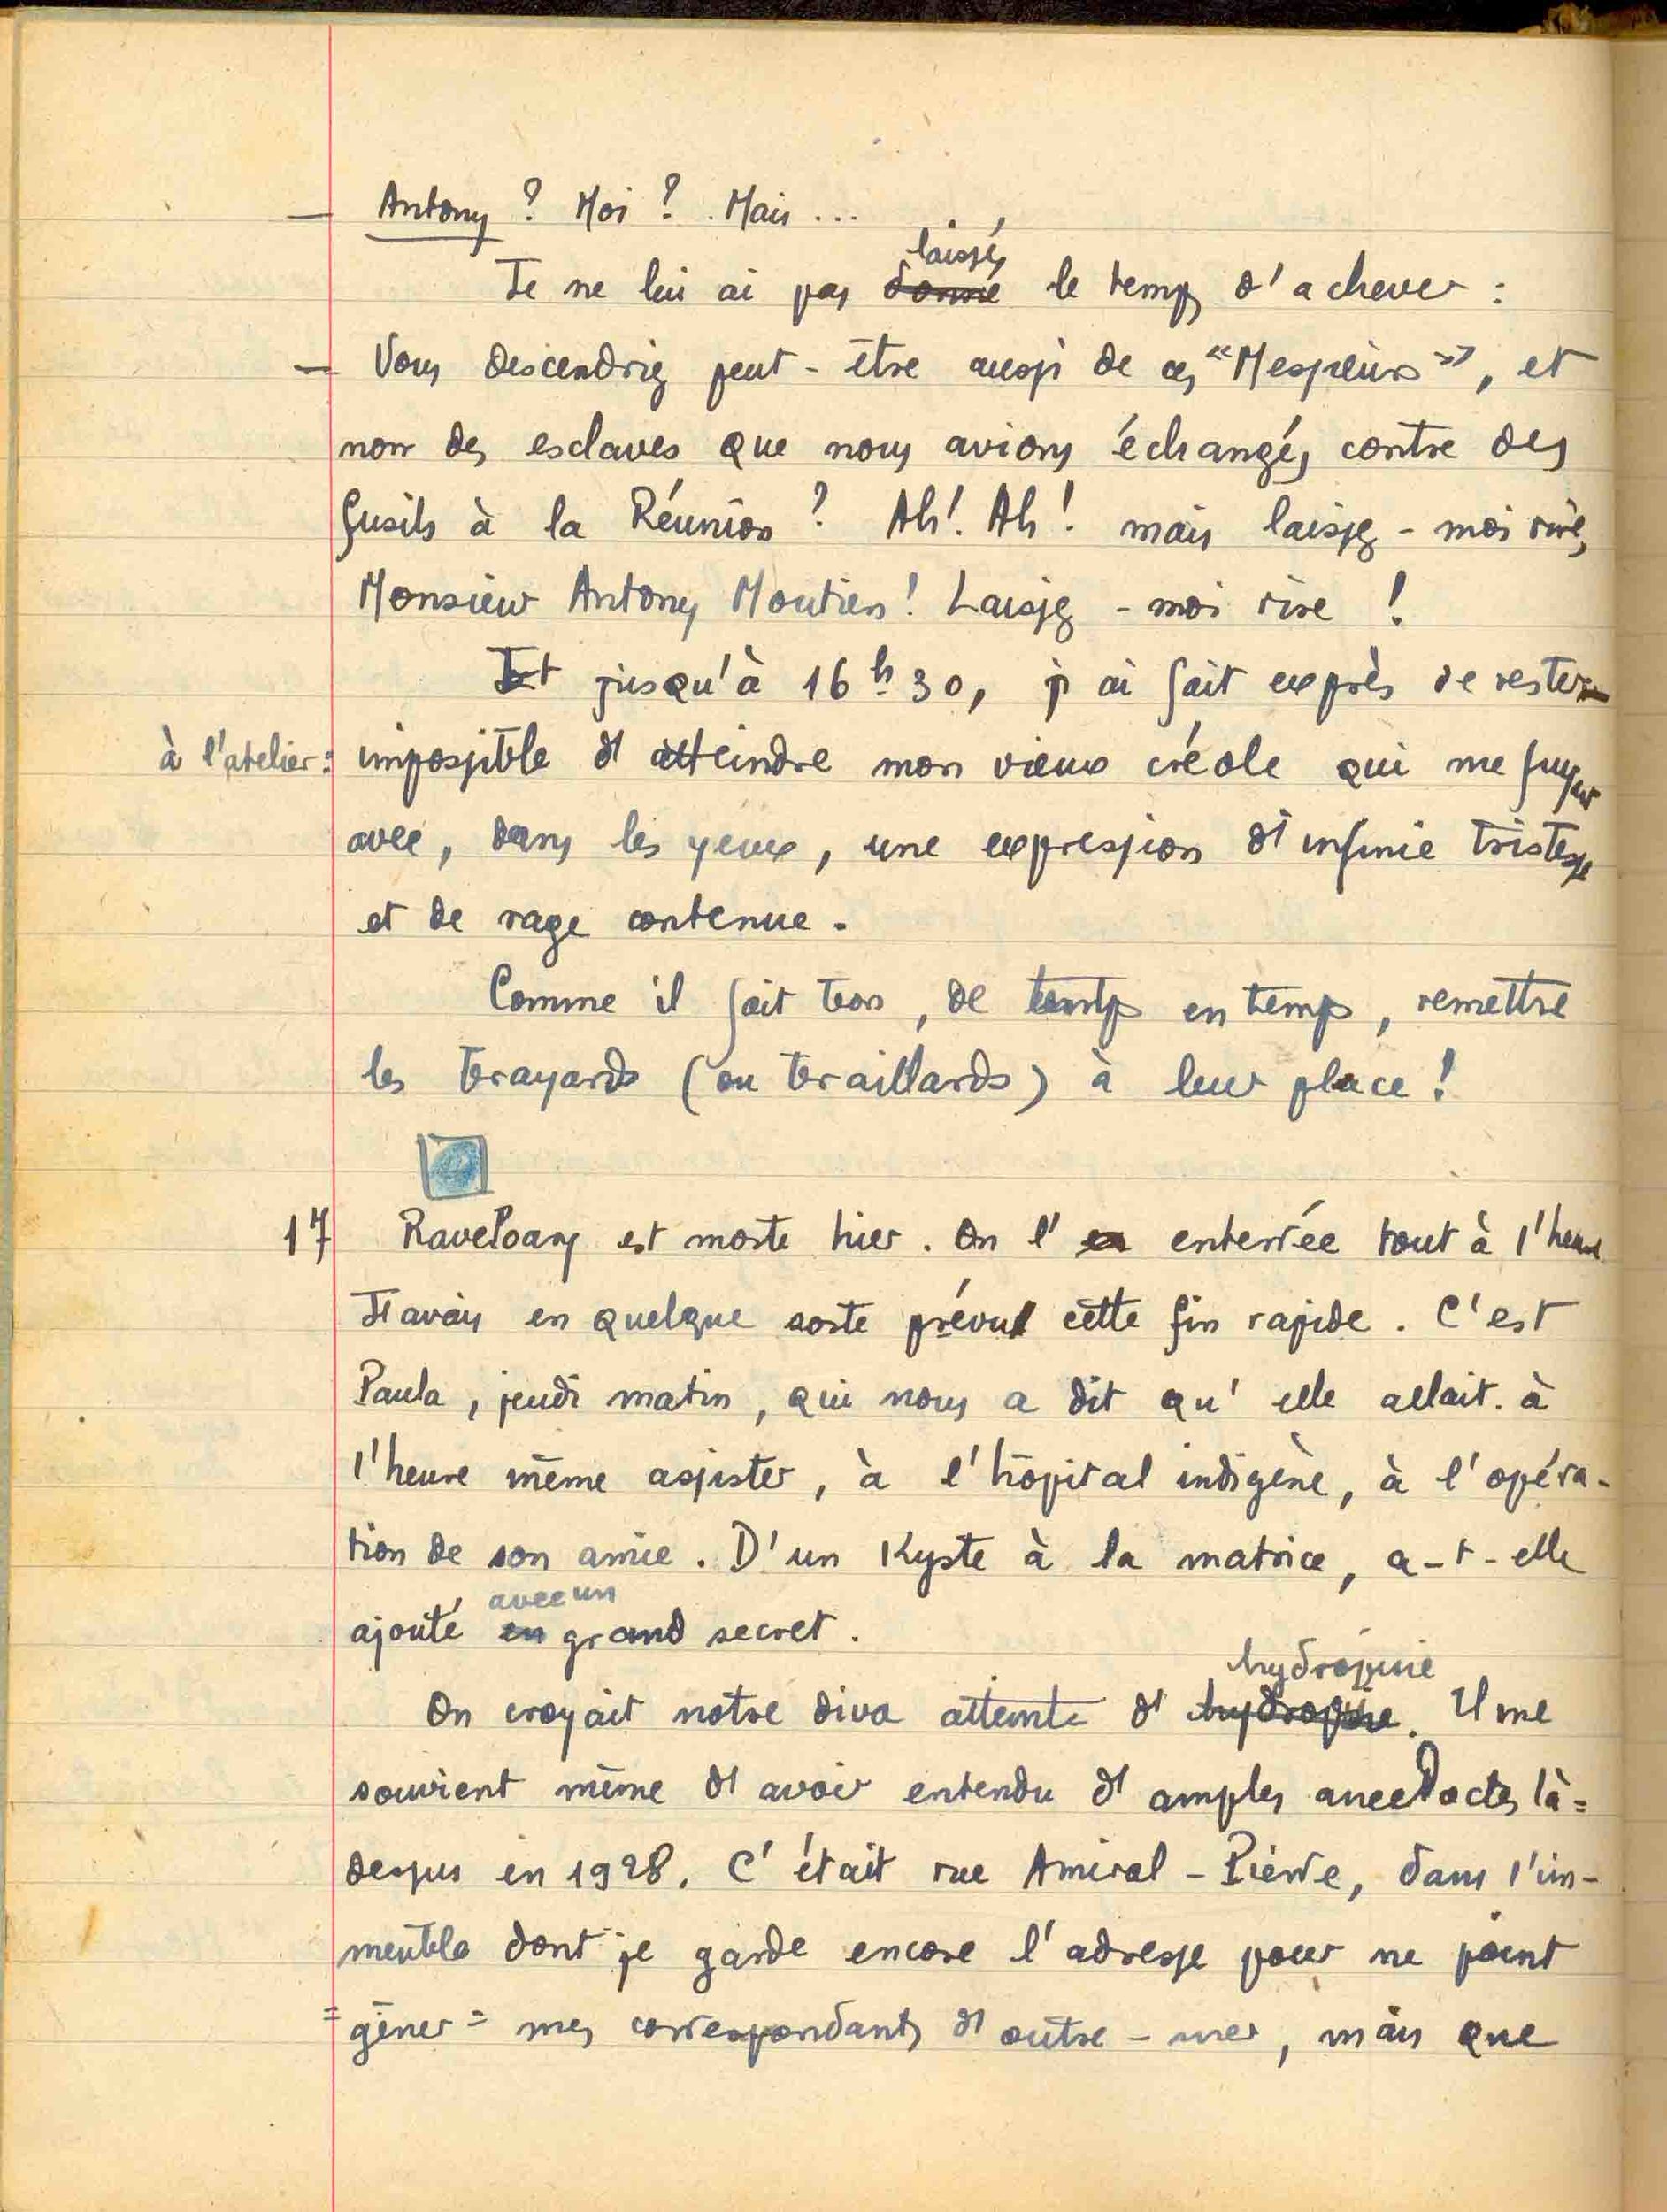 — Antony ? Moi ? Mais ...
laissé
Je ne lui ai pas donné le temps d'achever :
— Vous descendriez peut-être aussi de ces "Messieurs", et
non des esclaves que nous avions échangés contre des
fusils à la Réunion ? Ah ! Ah ! mais laissez-moi rire,
Monsieur Antony Moutien ! Laissez-moi rire !
Et jusqu'à 16 h 30, j'ai fait exprès de rester
à l'atelier : impossible d'atteindre mon vieux créole qui me fuyait
avec, dans les yeux, une expression d'infinie tristesse
et de rage contenue.
Comme il fait bon, de temps en temps, remettre
les brayards (ou braillards) à leur place !
17 Raveloary est morte hier. On l'a enterrée tout à l'heure
J'avais en quelque sorte prévu cette fin rapide. C'est
Paula, jeudi matin, qui nous a dit qu'elle allait à
l'heure même assister, à l'hôpital indigène, à l'opéra-
tion de son amie. D'un Kyste à la matrice, a-t-elle
avec un
ajouté en grand secret.
hydropisie
On croyait notre diva atteinte d'hydropisie. Il me
souvient même d'avoir entendu d'amples anecdoctes là=
dessus en 1928. C'était rue Amiral-Pierre, dans l'im-
meuble dont je garde encore l'adresse pour ne point
=gêner= mes correspondants d'outre-mer, mais que